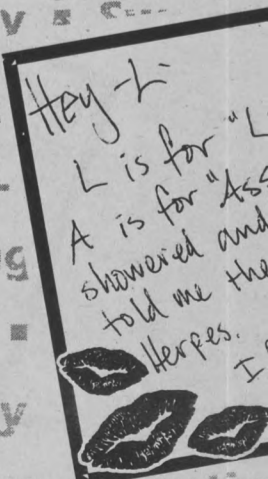 Hey-L-
L is for "L
A is for "Ass
showered and
told me the
Herpes.
I